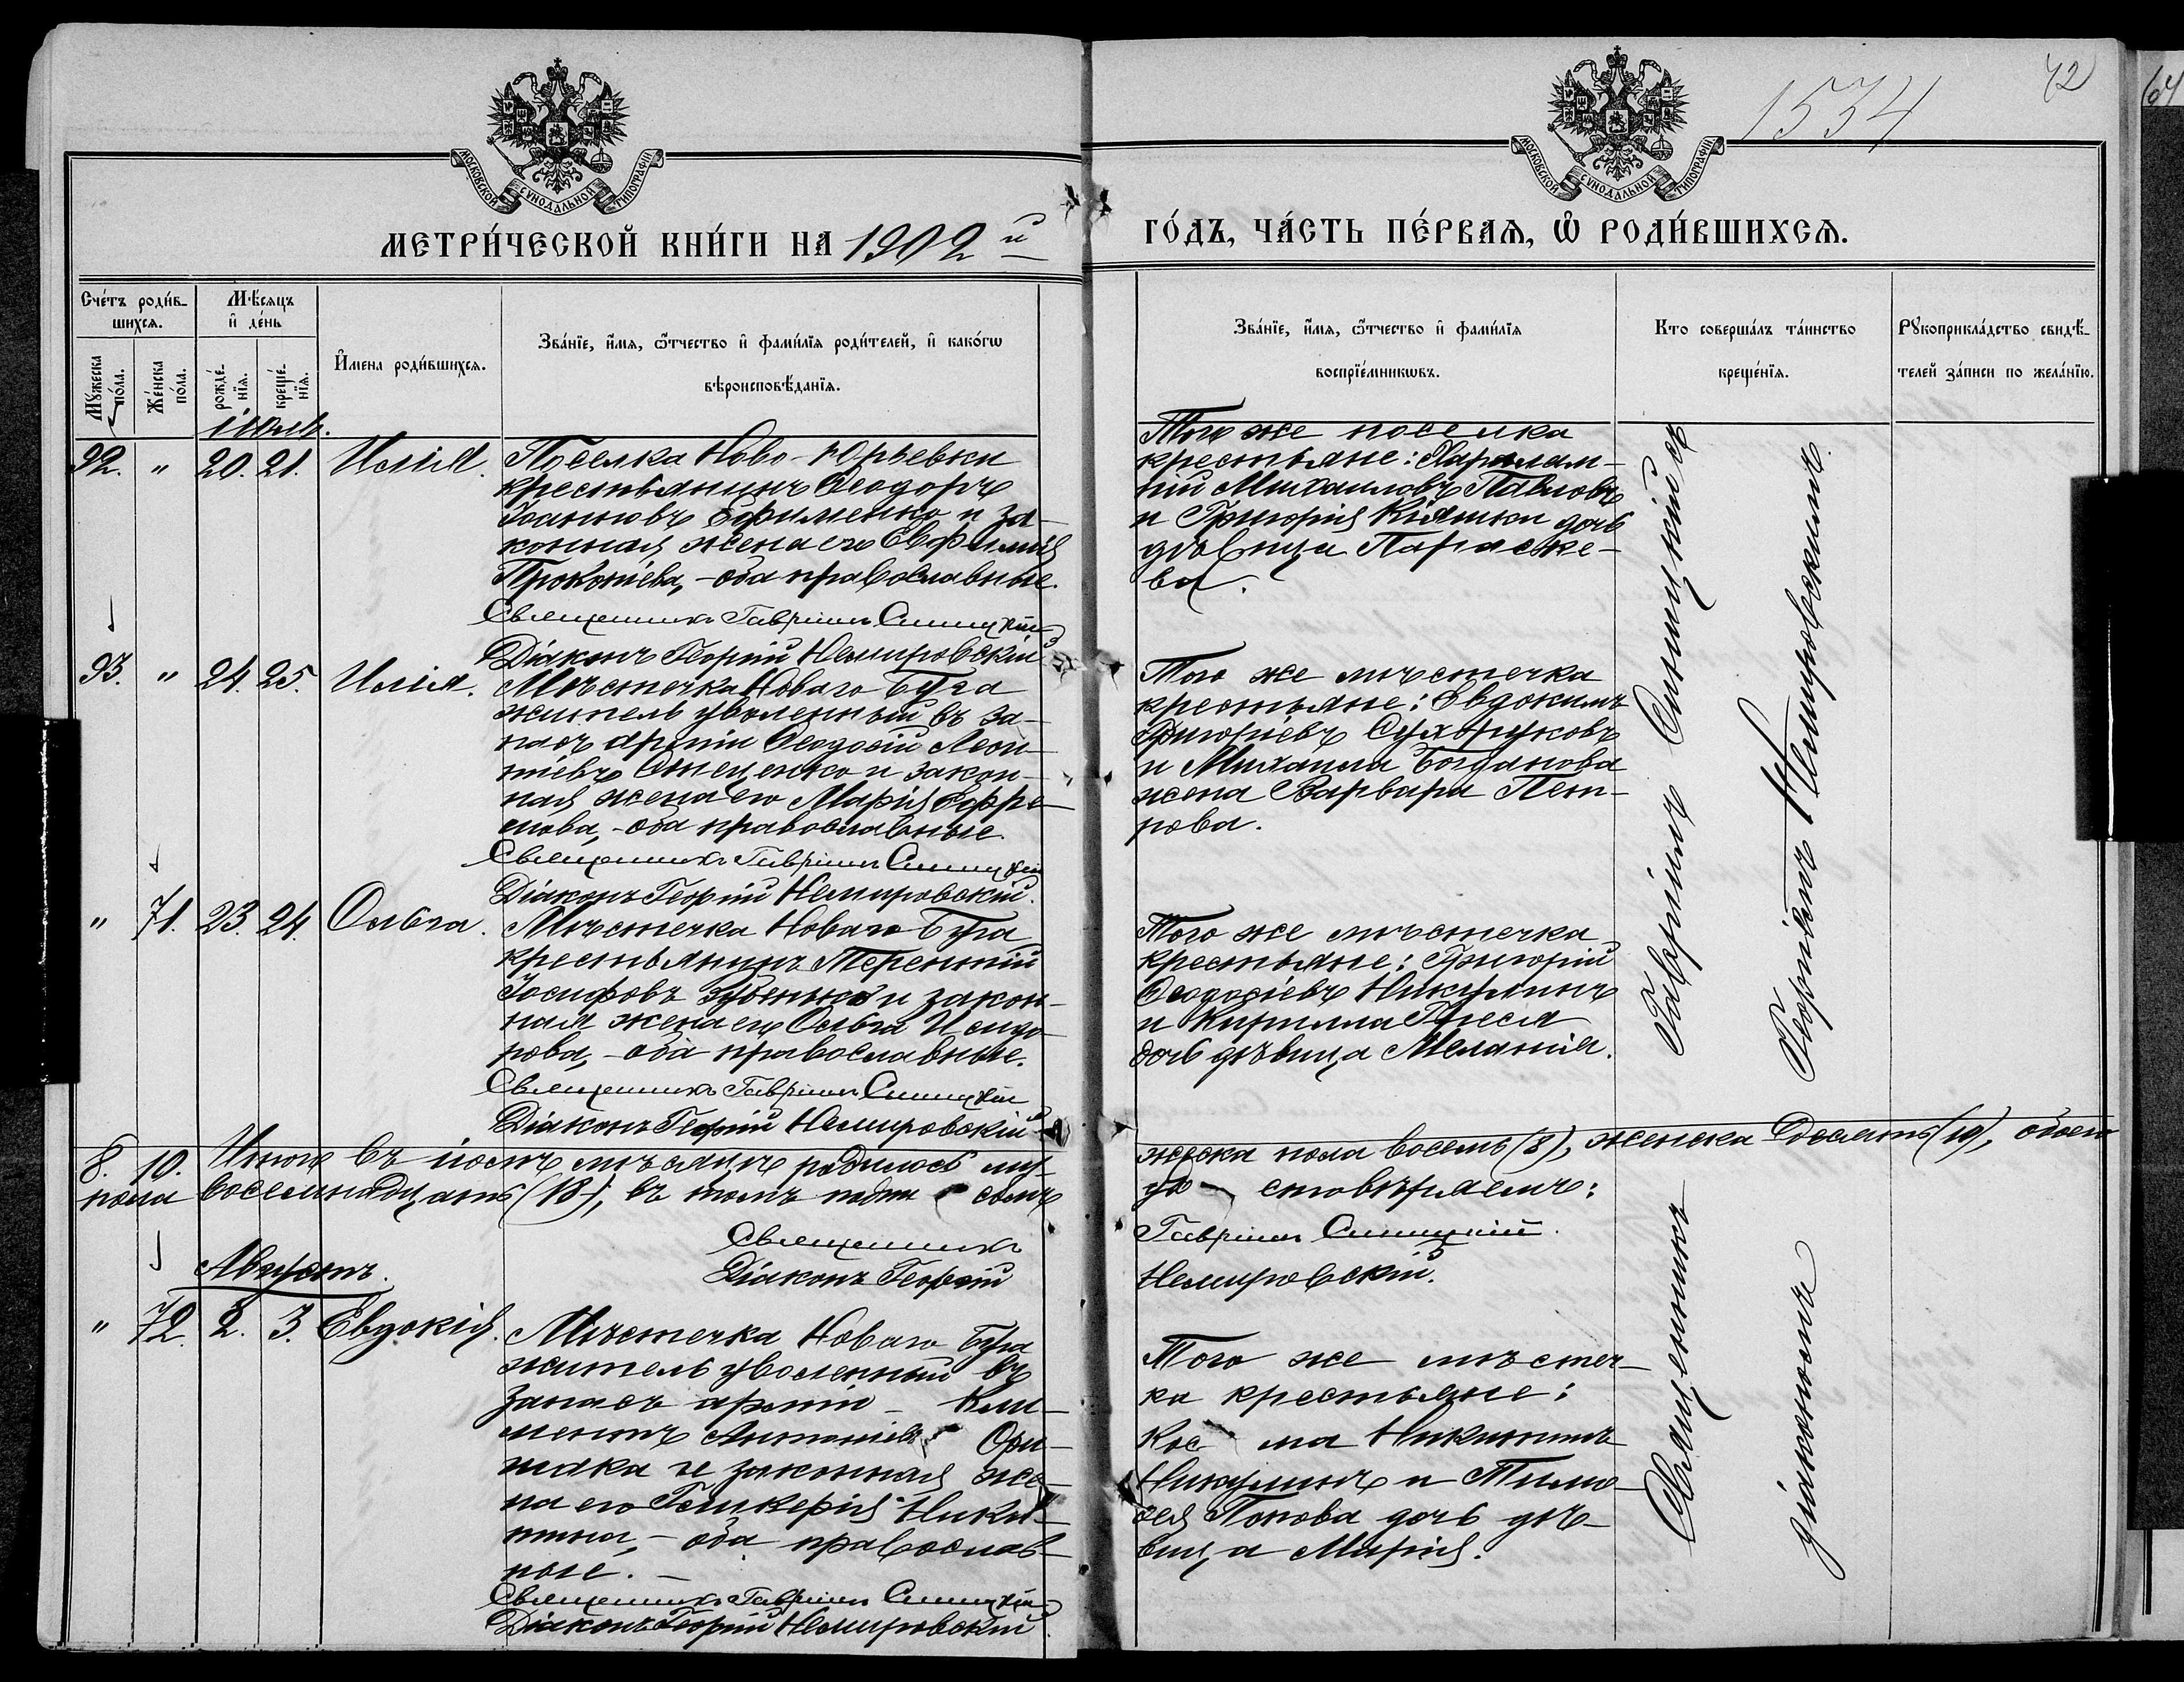 1534
42
64
МОСКОВСКОЙ СУНОДАЛЬНОЙ ТИПОГРАФІИ
МОСКОВСКОЙ СУНОДАЛЬНОЙ ТИПОГРАФІИ
МЕТРИ́ЧЕСКОЙ КНИ́ГИ НА 1902 й
ГО́ДЪ, ЧА́СТЬ ПЕ́РВАѦ, Ѡ РОДИ́ВШИХСѦ.
Сче́тъ роди́в-
шихсѧ.
Мꙋ́жеска по́ла.
Же́нска по́ла.
Мѣ́сѧцъ
и де́нь
рожде́-нїѧ.
креще́-нїѧ.
И҆мена роди́вшихсѧ.
Зва́нїе, и҆́мѧ, ѻ҆́тчество и҆ фами́лїѧ роди́телей, и҆ како́гѡ
вѣроисповѣ́данїѧ.
Зва́нїе, и҆́мѧ, ѻ҆́тчество и҆ фами́лїѧ
воспрїе́мникѡвъ.
Кто соверша́лъ та́инство
креще́нїѧ.
Рꙋкоприкла́дство свидѣ́-
телей за́писи по жела́нїю.
іюль.
92. " 20. 21. Илія.
Поселка Ново-Юрьевки
крестьянинъ Ѳеодоръ
Іоанновъ Ефименко и за-
конная жена его Евфимія
Прокопіева, - оба православные.
Священникъ Гавріилъ Синицкій
Діаконъ Георгій Немировскій
Того же поселка
крестьяне: Харалам-
пій Михаиловъ Павловъ
и Григорія Кляшки дочь
дѣвица Параске-
ва.
93. " 24. 25. Илія.
Мѣстечка Новаго Буга
житель уволенный въ за-
пасъ арміи Ѳеодосій Леон-
тіевъ Стеценко и закон-
ная жена его Марія Ефре-
мова, - оба православные.
Священникъ Гавріилъ Синицкій
Діаконъ Георгій Немировскій.
Того же мѣстечка
крестьяне: Евдокимъ
Григоріевъ Сухоруковъ
и Михаила Богданова
жена Варвара Пет-
рова.
" 71. 23. 24. Ольга.
Мѣстечка Новаго Буга
крестьянинъ Терентій
Іосифовъ Зубенко и закон-
ная жена его Ольга Исидо-
рова, - оба православные.
Священникъ Гавріилъ Синицкій
Діаконъ Георгій Немировскій
Того же мѣстечка
крестьяне: Григорій
Ѳеодосіевъ Никулинъ
и Кирилла
дочь дѣвица Меланія.
8. 10. Итого въ іюлѣ мѣсяцѣ родилось му-
жеска пола восемь (8), женска десять (10), обоего
пола восемнадцать (18), въ томъ подпи сомъ
удо стовѣряемъ:
Священникъ
Гавріилъ Синицкій.
Діаконъ Георгій
Немировскій.
Августъ.
" 72. 2. 3. Евдокія.
Мѣстечка Новаго Буга
житель уволенный въ
запасъ арміи - Кли-
ментъ Антоніевъ Ори-
щака и законная же-
на его Гликерія Ники-
тина, - оба православ-
ные. -
Священникъ Гавріилъ Синицкій
Діаконъ Георгій Немировскій.
Того же мѣстеч-
ка крестьяне:
Кос ма Никитинъ
Никулинъ и Тимо-
ѳея Попова дочь дѣ-
вица Марія.
Священникъ Гавріилъ Синицкій съ
діакономъ Георгіемъ Немировскимъ.